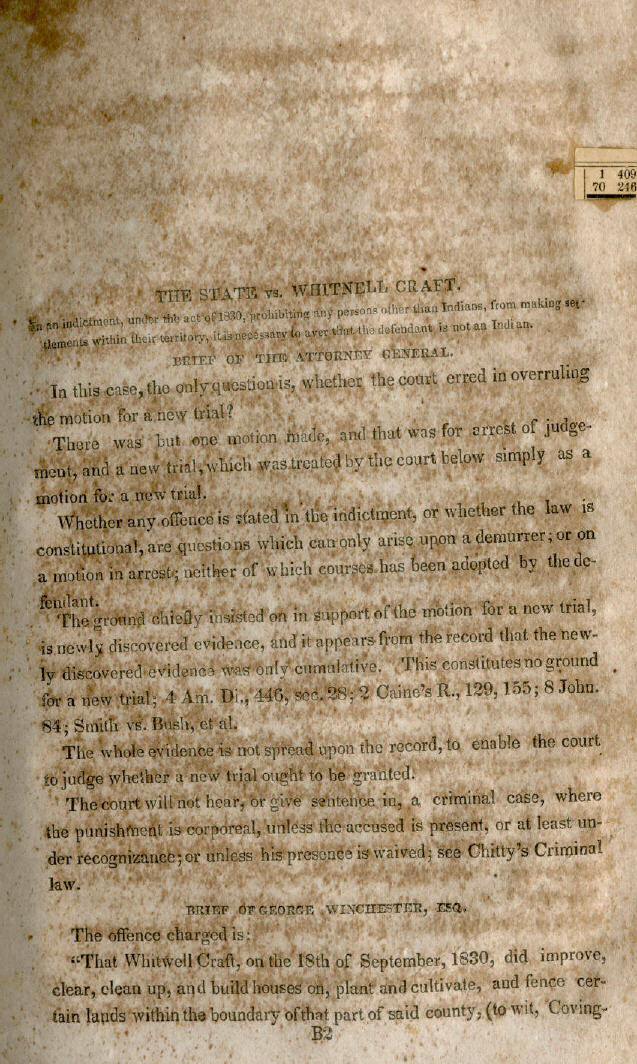 1 409
70 246
THE STATE vs. WHITNELL CRAFT.
In an indictment, under the act of 1830, prohibiting any persons other than Indians, from making set-
tlements within their territory, it is necessary to aver that the defendant is not an Indian.
BRIEF OF THE ATTORNEY GENERAL.
In this case, the only question is, whether the court erred in overruling
the motion for a new trial?
There was but one motion made, and that was for arrest of judge-
ment, and a new trial, which was treated by the court below simply as a
motion for a new trial.
Whether any offence is stated in the indictment, or whether the law is
constitutional, are questions which can only arise upon a demurrer; or on
a motion in arrest; neither of which courses has been adopted by the de-
fendant.
The ground chiefly insisted on in support of the motion for a new trial,
is newly discovered evidence, and it appears from the record that the new-
ly discovered evidence was only cumulative. This constitutes no ground
for a new trial; 4 Am. Di., 446, sec. 28; 2 Caine's R., 129, 155; 8 John.
84; Smith vs. Bush, et al.
The whole evidence is not spread upon the record, to enable the court
to judge whether a new trial ought to be granted.
The court will not hear, or give sentence in, a criminal case, where
the punishment is corporeal, unless the accused is present, or at least un-
der recognizance; or unless his presence is waived; see Chitty's Criminal
law.
BRIEF OF GEORGE WINCHESTER, ESQ.
The offence charged is:
"That Whitwell Craft, on the 18th of September, 1830, did improve,
clear, clean up, and build houses on, plant and cultivate, and fence cer-
tain lands within the boundary of that part of said county, (to wit, Coving-
B2